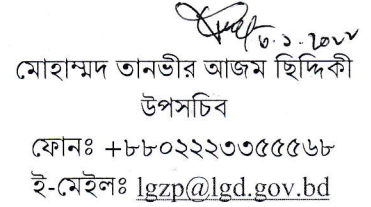 ৬.১.২০২২
মোহাম্মদ তানভীর আজম ছিদ্দিকী
উপসচিব
ফোনঃ +৮৮০২২২৩৩৫৫৫৬৮
ই-মেইলঃ lgzp@lgd.gov.bd